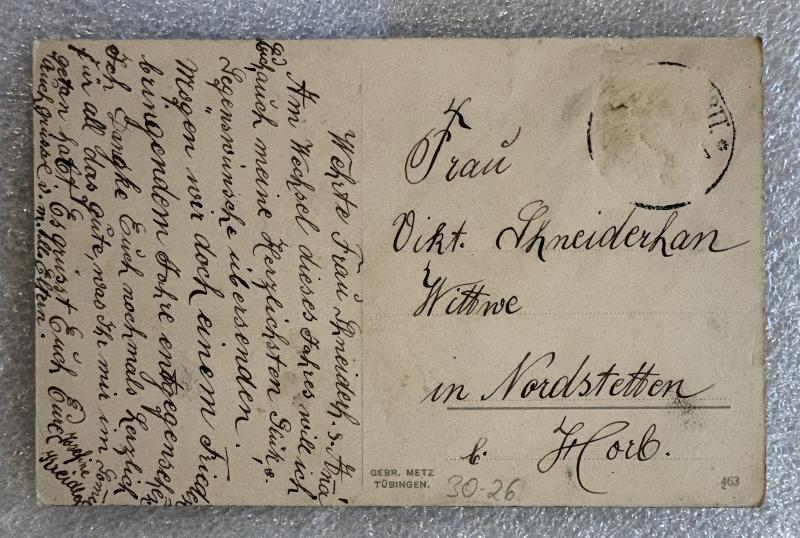 Wehrte Frau Schneiderh. u. Anna
Am Wechsel dieses Jahres will ich
Euch auch meine Herzlichsten Glück u.
Segenswünsche übersenden.
Mögen wir doch einem Fried
bringendem Jahre entgegensehen
Ich Dancke Euch nochmals herzlich
für all das Gute, was Ihr mir im
getan habt. Es grüsst Euch Eure
auch grüsse v. m. lb. Eltern.
Josefine
Schneider
Frau
Vikt. Schneiderhan
Wittwe
in Nordstetten
b. Horb.
GEBR. METZ
TÜBINGEN.
30-26
463